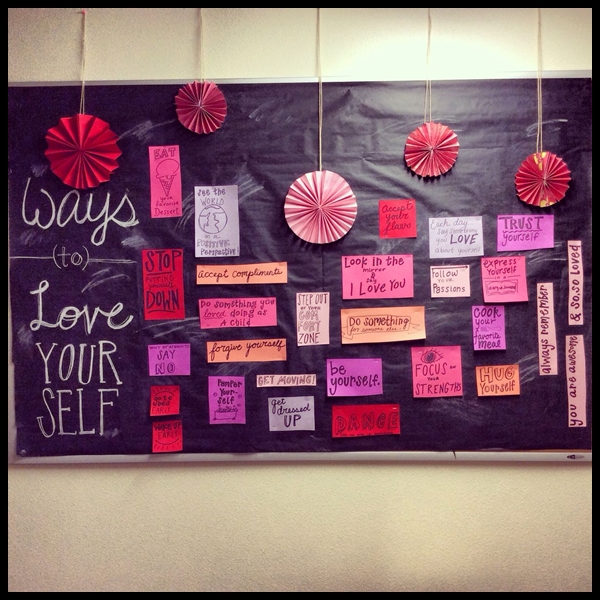 Ways
(to)
Love
YOUR
SELF
EAT
your
favorite
Dessert
See the
WORLD
in a
POSITIVE
Perspective
STOP
putting
yourself
DOWN
accept compliments
Do something you
loved doing as
a child
forgive yourself
SAY
NO
Pamper
Your-
self
GET MOVING!
get
dressed
UP
STEP OUT
of your
COM
FORT
ZONE
accept
your
flaws
Look in the
mirror
& say
I LOVE YOU
Do something
be
yourself.
DANCE
Each day
say something
you LOVE
about yourself
follow
your
Passions
TRUST
yourself
express
Yourself
in a
COOK
your
favorite
Meal
FOCUS
on
YOUR
STRENGTHS
HUG
Yourself
WAKE UP
EARLY
always remember
you are awesome
& So, so loved